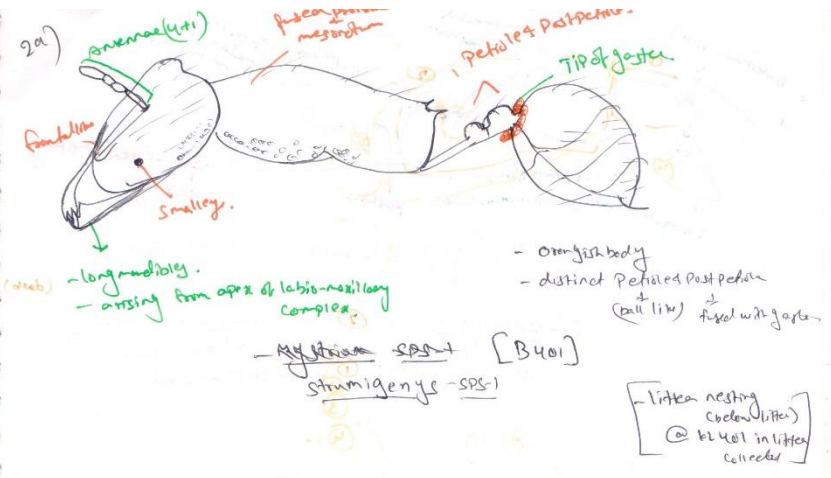 2a)
Antennae(4+1)
fused
mesonotum
Petiole & Postpetiole.
Tip of gaster
frontal line
small eye.
- long mandibles.
- arising from apex of labio-maxillary
complex.
- orengish body
- distinct Petiole & Postpetiole
(ball like) fused with gaster
- Mystrium SPS-1 [B401]
Strumigenys - SPS-1
- litter nesting
(below litter)
@ 401 in litter
collected